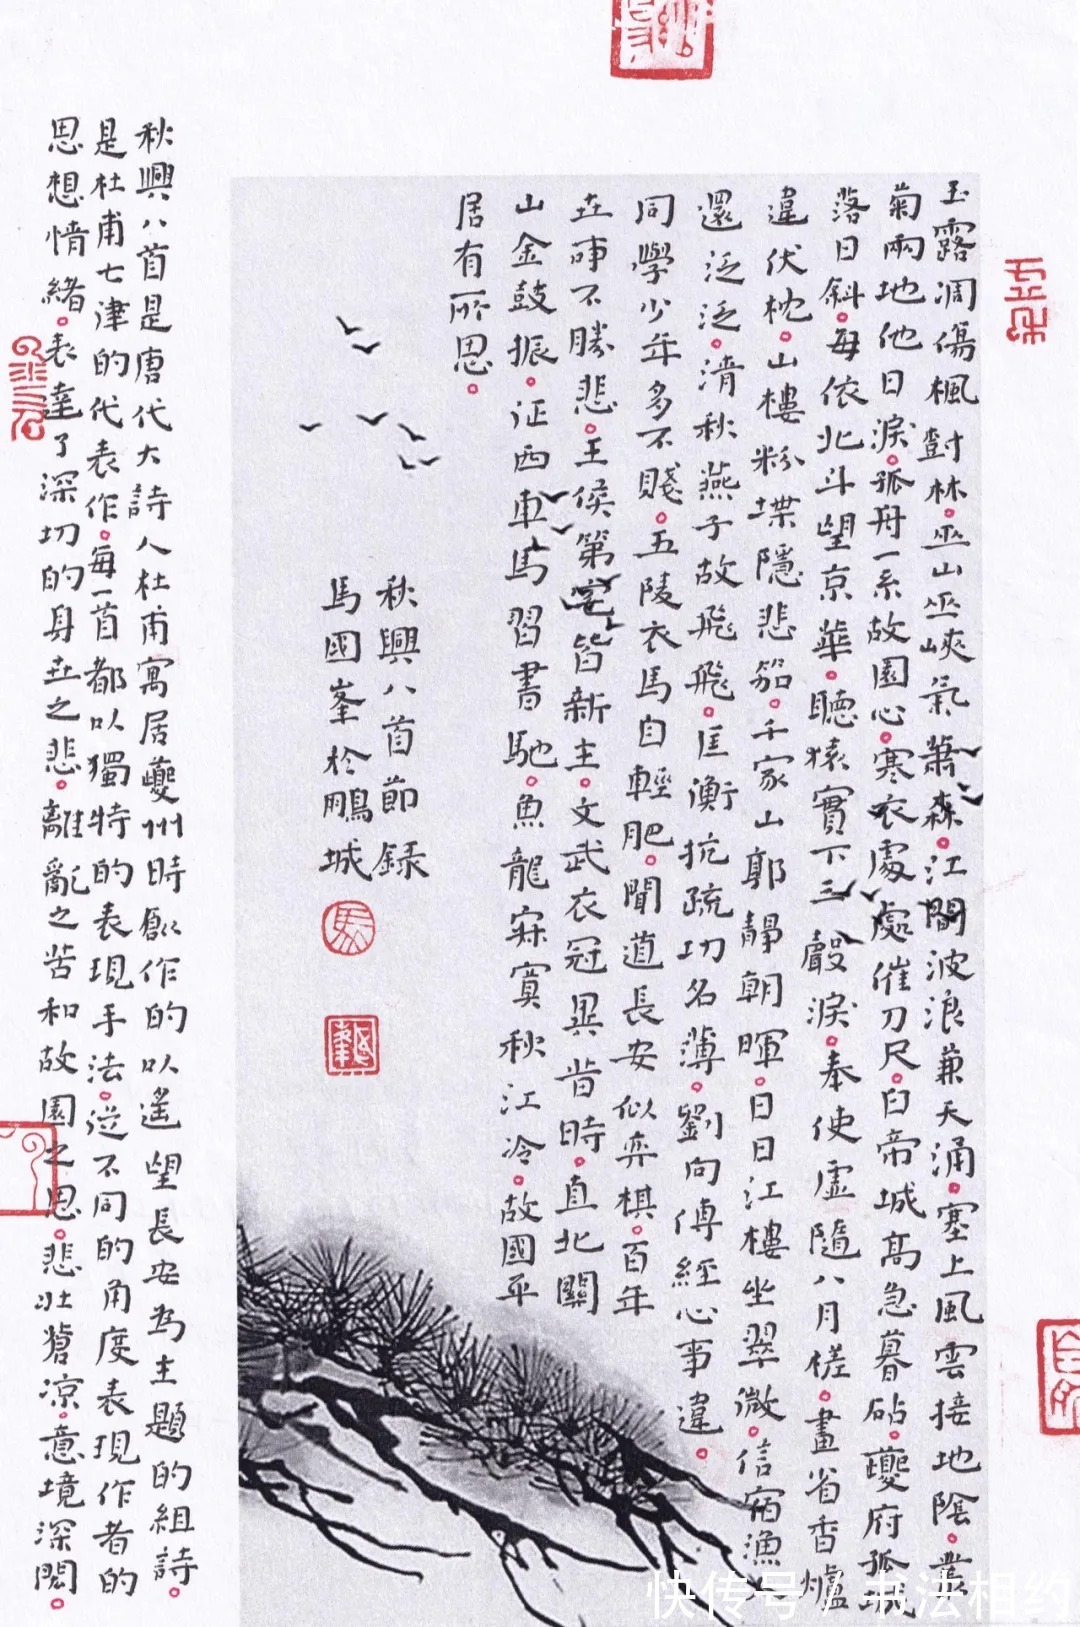 玉露凋傷楓對林。巫山巫峽氣蕭森。江間波浪兼天涌。塞上風雲接地陰。叢
菊兩地他日淚。孤舟一系故園心。寒衣處處催刀尺。白帝城高急暮砧。夔府孤城
落日斜。每依北斗望京華。聽猿實下三聲淚。奉使虛隨八月槎。畫省香爐
違伏枕。山樓粉堞隱悲笳。千家山郭靜朝暉。日日江樓坐翠微。信宿漁
還泛泛。清秋燕子故飛飛。匡衡抗疏功名薄。劉向傳經心事違。
同學少年多不賤。五陵衣馬自輕肥。聞道長安似弈棋。百年
世事不勝悲。王侯第宅皆新主。文武衣冠異昔時。直北關
山金鼓振。征西車馬習書馳。魚龍寂寞秋江冷。故國平
居有所思。
秋興八首節錄
馬國峯於鵬城
秋興八首是唐代大詩人杜甫寓居夔州時創作的以遙望長安為主題的組詩。
是杜甫七律的代表作。每一首都以獨特的表現手法。從不同的角度表現作者的
思想情緒。表達了深切的身世之悲。離亂之苦和故園之思。悲壯蒼凉。意境深閎。
快传号 / 书法相约